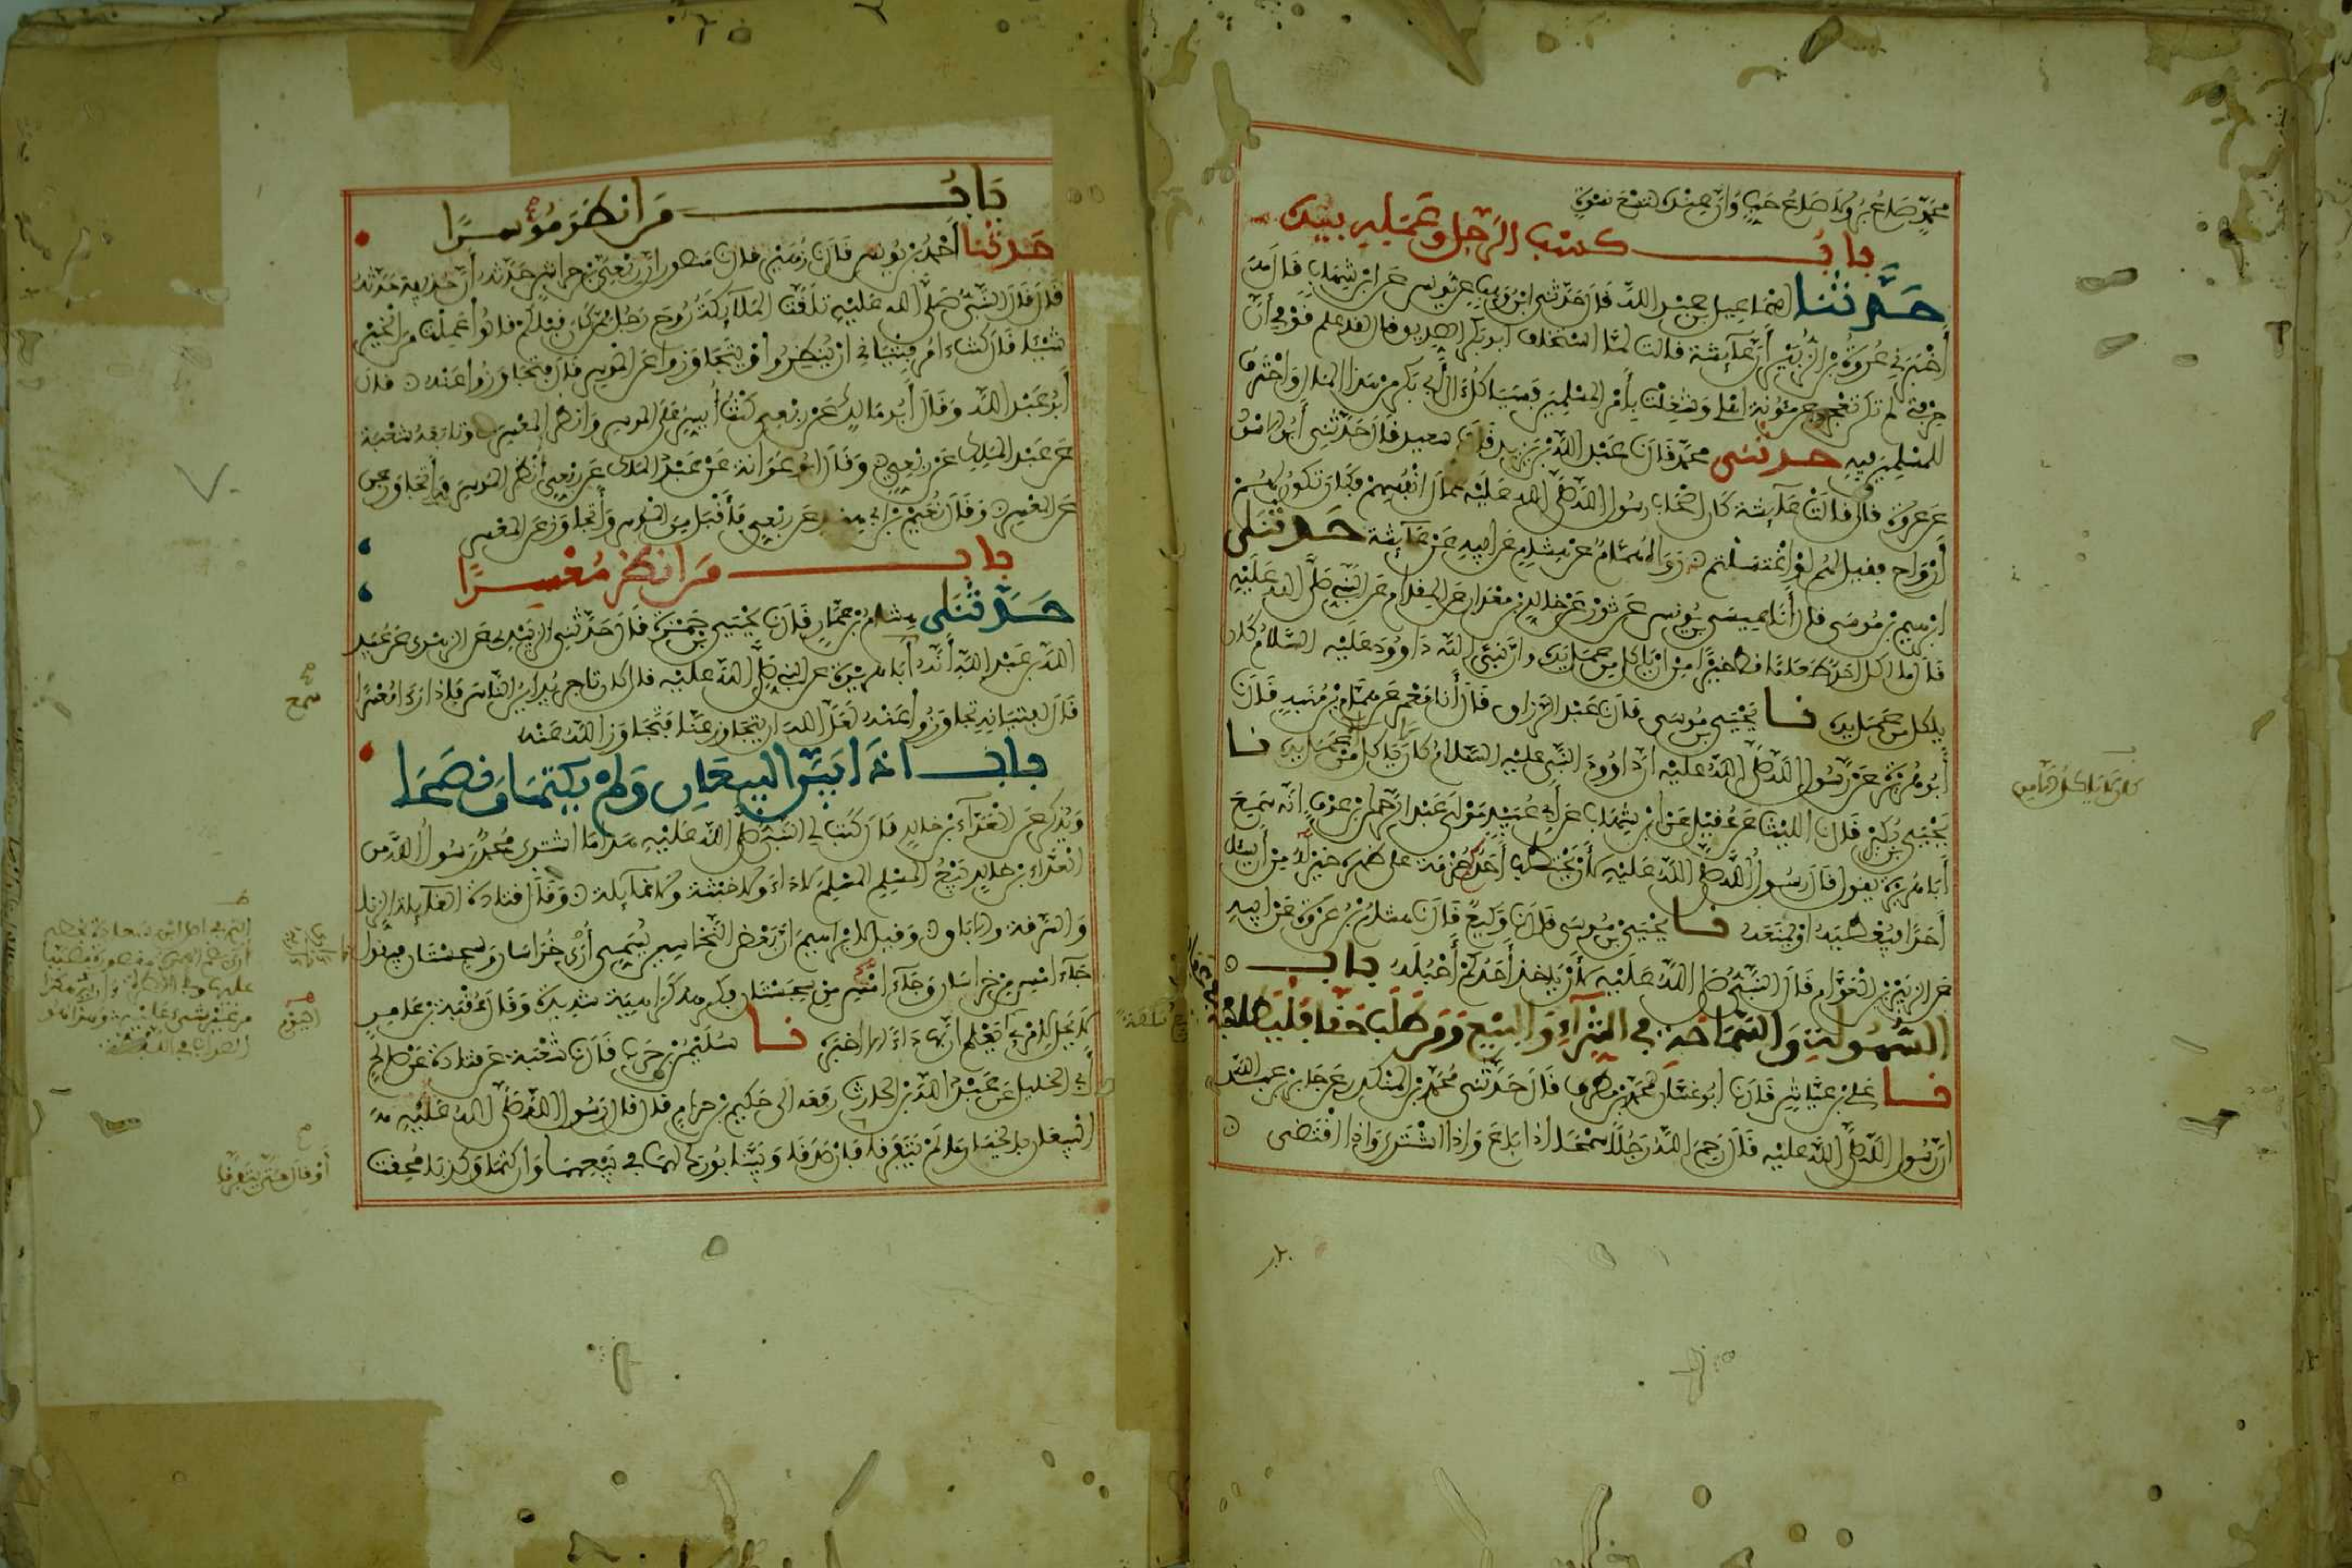 محمد صاع بر ولا صاع حب وان عنده لتسع نسوة
باب كسب الرجل وعمله بيده
حدثنا اسماعيل بن عبد الله قال حدثني ابن وهب عن يونس عن ابن شهاب قال
أخبرني عروة بن الزبير أن عائشة قالت لما استخلف أبو بكر الصديق قال لقد علم قومي أن
حرفتي لم تكن تعجز عن مؤونة أهلي وشغلت بأمر المسلمين فسيأكل آل أبي بكر من هذا المال واحترف
للمسلمين فيه حدثني محمد قال نا عبد الله بن يزيد قال نا سعيد قال حدثني أبو الاسود
عن عروة قال قالت عائشة كان أصحاب رسول الله صلى الله عليه عمال أنفسهم فكان تكون لهم
أرواح فقيل لهم لو اغتسلتم رواه همام عن هشام عن أبيه عن عائشة حدثني
ابراهيم بن موسى قال أنا عيسى بن يونس عن ثور عن خالد بن معدان عن المقدام عن النبي صلى الله عليه
قال ما أكل أحد طعاما قط خيرا من أن يأكل من عمل يده وان نبي الله داوود عليه السلام كان
يأكل من عمل يده نا يحيى بن موسى قال نا عبد الرزاق قال أنا معمر عن همام بن منبه قال نا
أبو هريرة عن رسول الله صلى الله عليه أن داوود النبي عليه السلام كان لا يأكل إلا من عمل يده نا
يحيى بن بكير قال نا الليث عن عقيل عن ابن شهاب عن أبي عبيد مولى عبد الرحمن بن عوف انه سمع
أبا هريرة يقول قال رسول الله صلى الله عليه لأن يحتطب أحدكم حزمة على ظهره خير له من أن يسأل
أحدا فيعطيه او يمنعه نا يحيى بن موسى قال نا وكيع قال نا هشام بن عروة عن أبيه
عن الزبير بن العوام قال النبي صلى الله عليه لأن يأخذ أحدكم أحبله باب
السهولة والسماحة في الشراء والبيع ومن طلب حقا فليطلبه
نا علي بن عياش قال نا أبو غسان محمد بن مطرف قال حدثني محمد بن المنكدر عن جابر بن عبد الله
ان رسول الله صلى الله عليه قال رحم الله رجلا سمحا اذا باع واذا اشترى واذا اقتضى
باب من انظر موسرا
حدثنا أحمد بن يونس قال نا زهير قال نا منصور ان ربعي بن حراش حدثه أن حذيفة حدثه
قال قال النبي صلى الله عليه تلقت الملائكة روح رجل ممن كان قبلكم قالوا أعملت من الخير
شيئا قال كنت آمر فتياني أن ينظروا ويتجاوزوا عن الموسر قال فتجاوزوا عنه قال
أبو عبد الله وقال أبو مالك عن ربعي كنت أيسر على الموسر وانظر المعسر وتابعه شعبة
عن عبد الملك عن ربعي وقال ابو عوانة عن عبد الملك عن ربعي أنظر الموسر وأتجاوز عن
عن المعسر وقال نعيم بن أبي هند عن ربعي فأقبل من الموسر وأتجاوز عن المعسر
باب من انظر معسرا
حدثني هشام بن عمار قال نا يحيى بن حمزة قال حدثني الزبيدي عن الزهري عن عبيد
الله بن عبد الله أنه أبا هريرة عن النبي صلى الله عليه قال كان تاجر يداين الناس فاذا رأى معسرا
قال لفتيانه تجاوزوا عنه لعل الله ان يتجاوز عنا فتجاوز الله عنه
باب اذا بين البيعان ولم يكتما ونصحا
ويذكر عن العداء بن خالد قال كتب لي النبي صلى الله عليه هذا ما اشترى محمد رسول الله من
العداء بن خالد بيع المسلم المسلم لا داء ولا خبثة ولا غائلة وقال قتادة الغائلة الزنا
والسرقة والاباق وقيل لابراهيم ان بعض النخاسين يسمي آري خراسان وسجستان فيقول
جاء أمس من خراسان وجاء أمس من سجستان فكرهه كراهية شديدة وقال عقبة بن عامر
لا يحل لامرئ يعلم ان بها داء الا أخبره نا سليمان بن حرب قال نا شعبة عن قتادة عن صالح
أبي الخليل عن عبد الله بن الحارث رفعه الى حكيم بن حزام قال قال رسول الله صلى الله عليه
البيعان بالخيار ما لم يتفرقا فان صدقا وبينا بورك لهما في بيعهما وان كتما وكذبا محقت